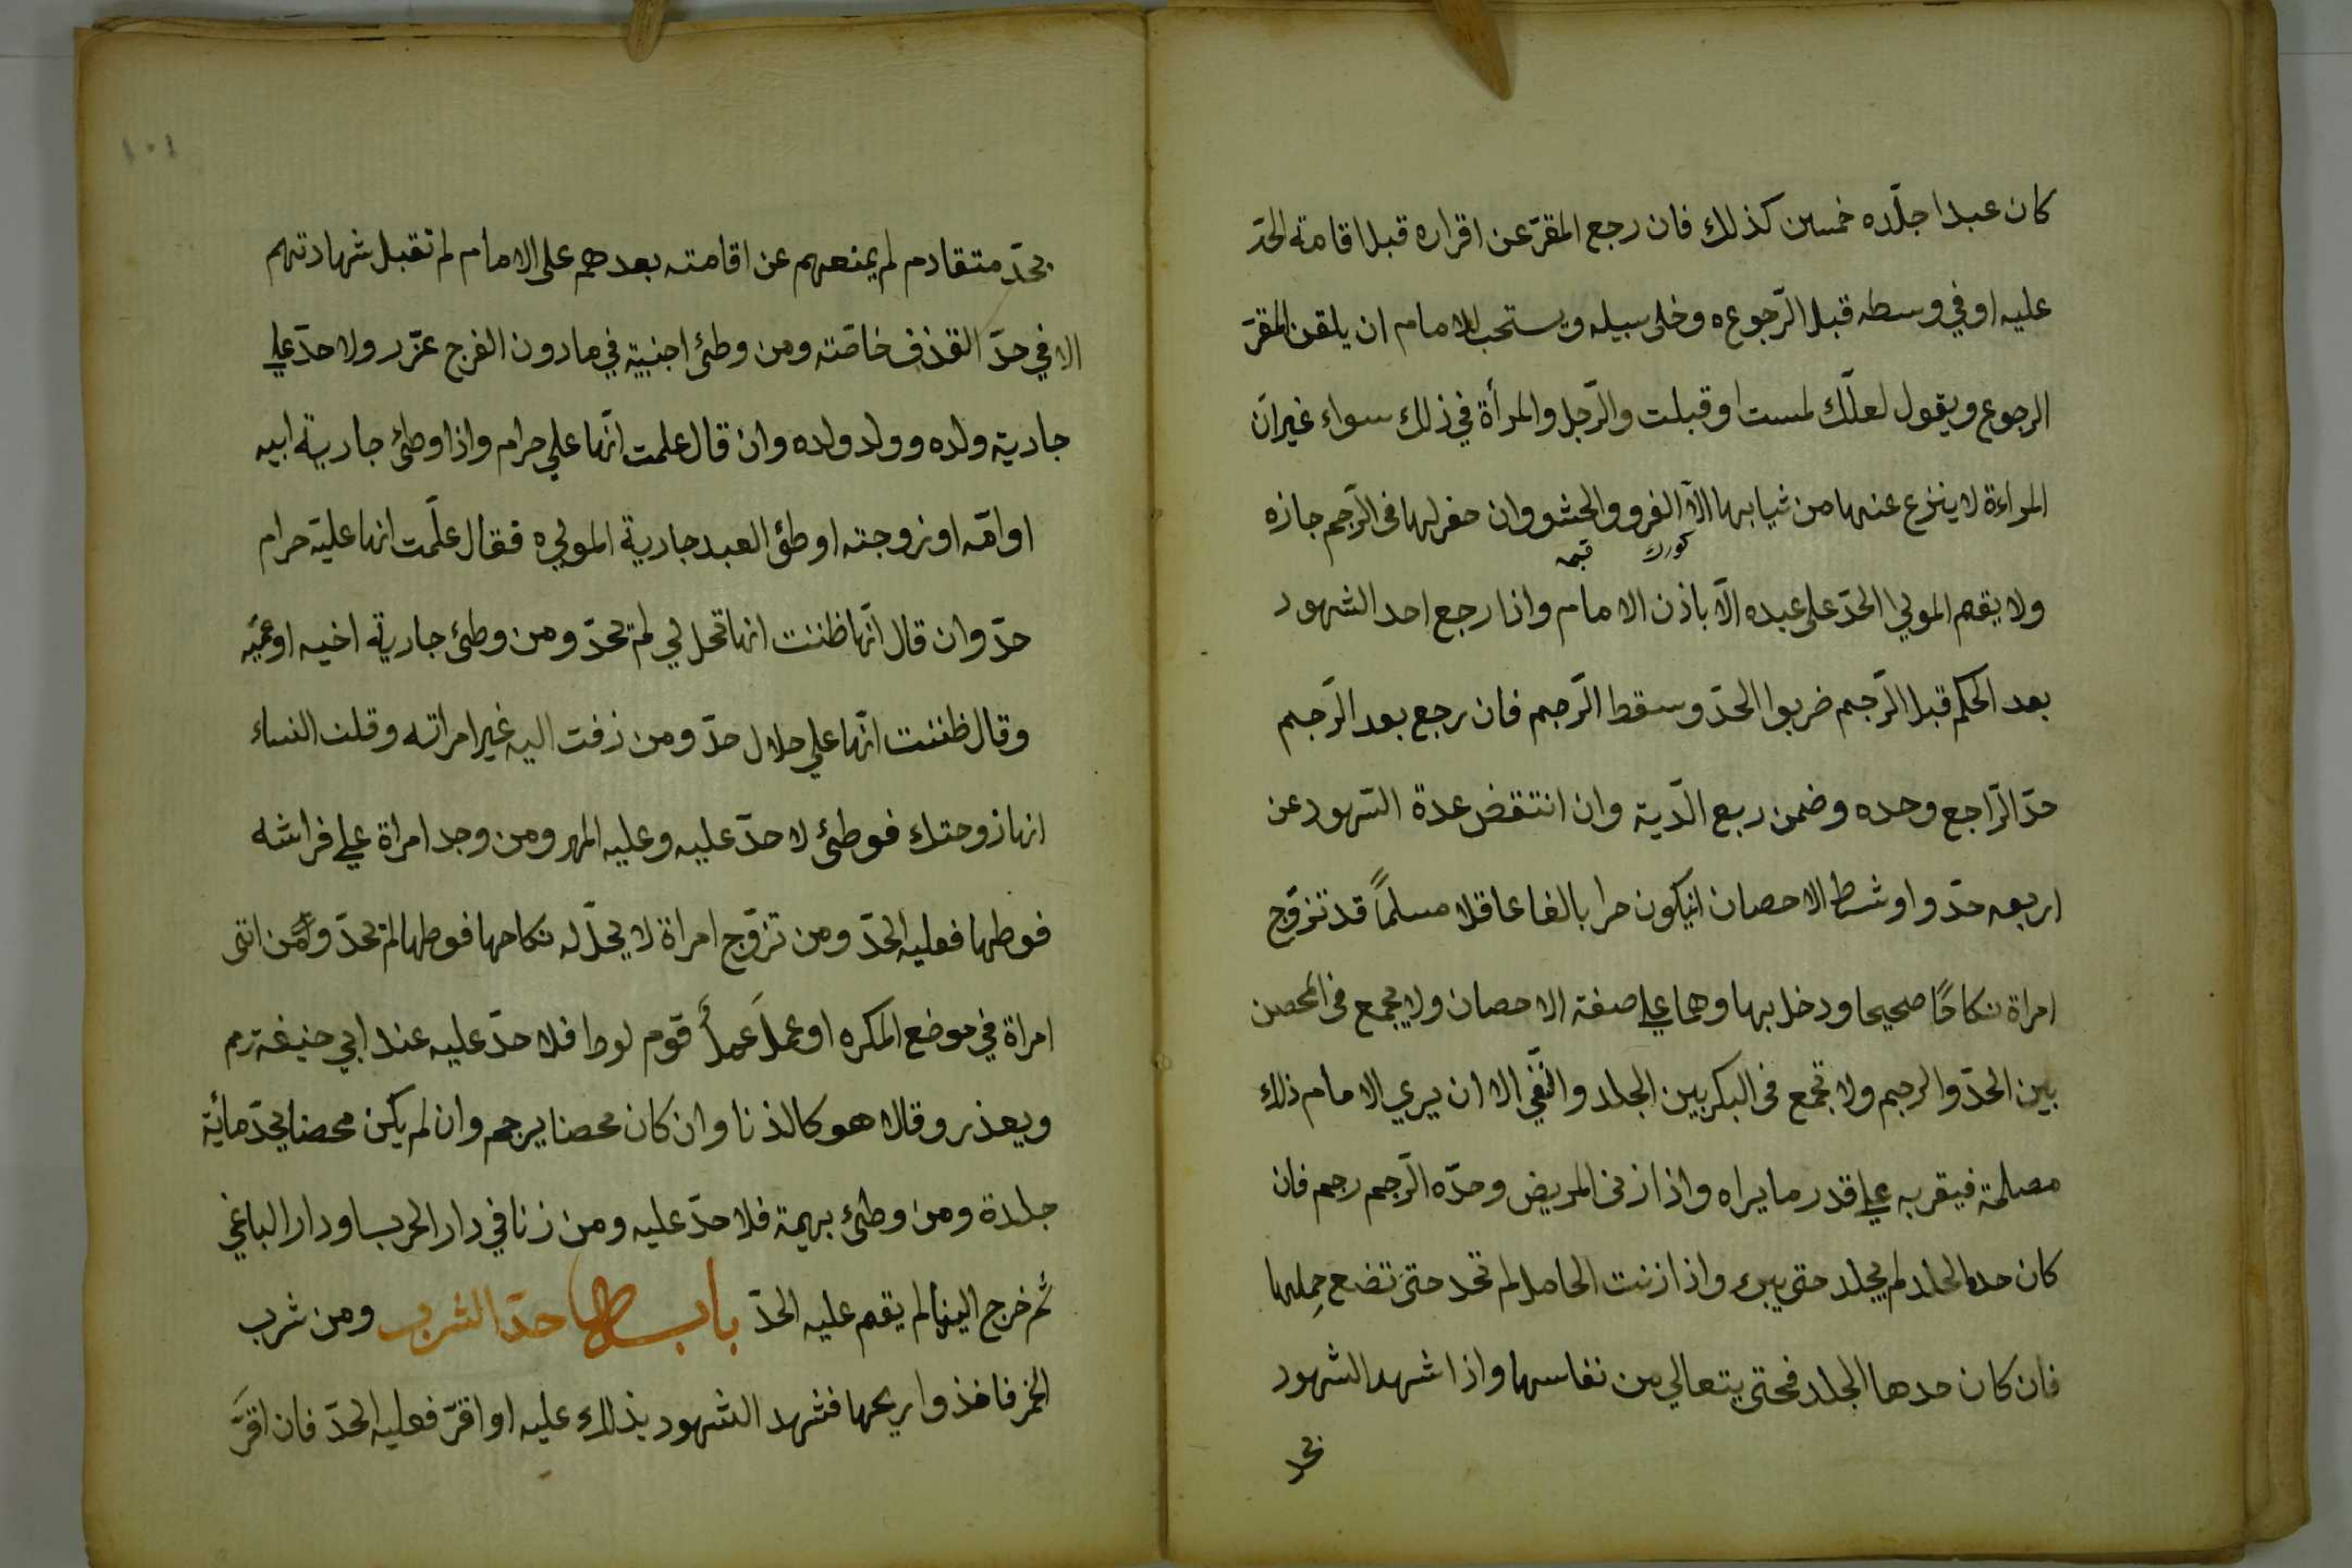 كان عبدا جلّده خمسين كذلك فان رجع المقرّ عن اقراره قبل اقامة الحدّ
عليه او في وسطه قبل الرّجوعه وخلى سبيله ويستحب للامام ان يلقن المقرّ
الرجوع ويقول لعلّك لمست او قبلت والرّجل والمرأة في ذلك سواء غير انّ
المراءة لا ينزع عنها من ثيابها الّا الفرو والحشو وان حفر لها فى الرّجم جازه
كورك
ولا يقم المولي الحدّ على عبده الّا باذن الامام واذا رجع احد الشهود
بعد الحكم قبل الرّجم ضربوا الحدّ وسقط الرّجم فان رجع بعد الرّجم
حدّ الرّاجع وحده وضمن ربع الدّية وان انتقض عدة الشهود عن
اربعه حدّوا وشرط الاحصان انيكون حرا بالغا عاقلا مسلماً قد تزوّج
امراة نكاحًا صحيحا ودخل بها وهما علي صفة الاحصان ولا يجمع فى المحصن
بين الحدّ والرجم ولا تجمع فى البكر بين الجلد والنّفي الا ان يري الامام ذلك
مصلحة فيقربه علي قدر ما يراه واذا زنى المريض وحدّه الرّجم رجم فان
كان حده الجلد لم يجلد حتى يبرء واذا زنت الحامل لم تحد حتى تضع حملها
فان كان حدها الجلد فحتى يتعالي من نفاسها واذا شهد الشهود
بحد
١٠١
بحدّ متقادم لم يمنعهم عن اقامته بعدهم على الامام لم تقبل شهادتهم
الا في حدّ القذف خاصّته ومن وطئ اجنبية في مادون الفرج عزّر ولا حدّ علي
جارية ولده وولد ولده وان قال علمت انّها علي حرام واذا وطئ جارية ابيه
او امّه او زوجته او طؤ العبد جارية الموليه فقال علّمت انها عليّ حرام
حدّ وان قال انّها ظننت انها تحل لي لم يحدّ ومن وطئ جارية اخيه او عميّه
وقال ظننت انّها علي حلال حدّ ومن زفت اليه غير امراته وقلن النساء
انها زوجتك فوطئ لا حدّ عليه وعليه المهر ومن وجد امراة علي فراشه
فوطها فعليه الحدّ ومن تزوّج امراة لا يحلّ له نكاحها فوطها لم يحدّ ومن اتى
امراة في موضع المكره او عمل عمل قوم لوط فلا حدّ عليه عند ابي حنيفة رحم
ويعذر وقالا هو كالذنا وان كان محصنا يرجم وان لم يكن محصنا يحدّ مأية
جلدة ومن وطئ بهيمة فلا حدّ عليه ومن زنا في دار الحرب او دار الباغي
ثم خرج الينا لم يقم عليه الحدّ باب حدّ الشرب ومن شرب
الخمر فاخذوا ريحها فشهد الشهود بذلك عليه او اقرّ فعليه الحدّ فان اقرّ